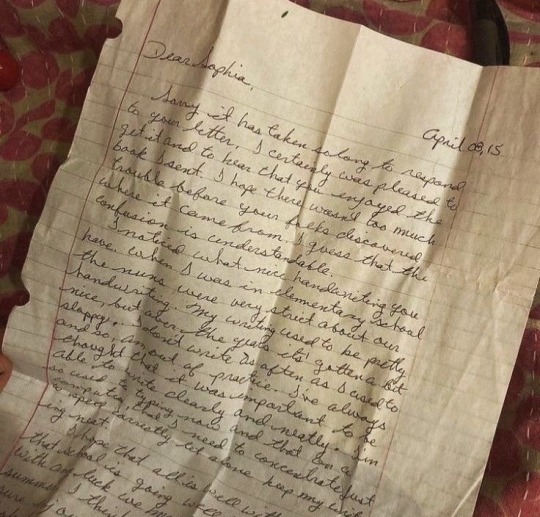 Dear Sophia,
April 08, 15
Sorry it has taken so long to respond
to your letter. I certainly was pleased to
get it and to hear that you enjoyed the
book I sent. I hope there wasn't too much
trouble before your folks discovered
where it came from. I guess that the
confusion is understandable.
I noticed what nice handwriting you
have. When I was in elementary school
the nuns were very strict about our
handwriting. My writing used to be pretty
nice, but over the years it's gotten a bit
sloppy. I don't write as often as I used to
and so, am out of practice. I've always
thought that it was important to be
able to write clearly and neatly. I'm
so used to typing now and that on a
computer, that I need to concentrate just
to spell correctly let alone keep my writ-
ing neat.
I hope that all is well with
that school is going well
With any luck we
summer. I